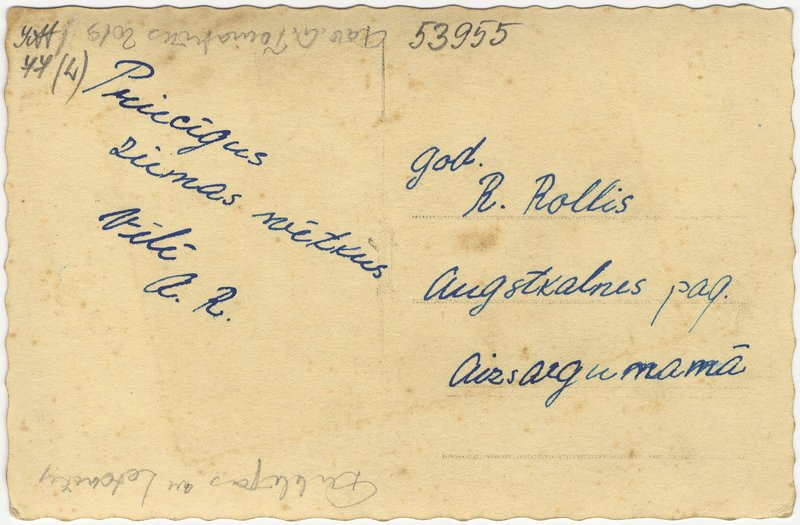 53955
77(L)
Priecīgus
ziemas svētkus
Vēlī
A. R.
god.
R. Rollis
Augstkalnes pag.
Aizsargu mamā